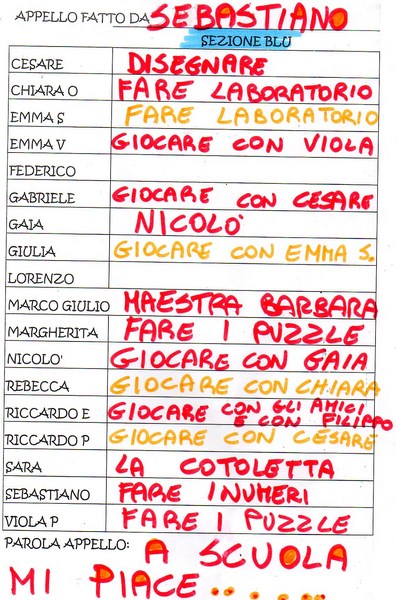 APPELLO FATTO DA SEBASTIANO
SEZIONE BLU
CESARE DISEGNARE
CHIARA O FARE LABORATORIO
EMMA S FARE LABORATORIO
EMMA V GIOCARE CON VIOLA
FEDERICO
GABRIELE GIOCARE CON CESARE
GAIA NICOLO'
GIULIA GIOCARE CON EMMA S.
LORENZO
MARCO GIULIO MAESTRA BARBARA
MARGHERITA FARE I PUZZLE
NICOLO' GIOCARE CON GAIA
REBECCA GIOCARE CON CHIARA
RICCARDO E GIOCARE CON GLI AMICI
E CON FILIPPO
RICCARDO P GIOCARE CON CESARE
SARA LA COTOLETTA
SEBASTIANO FARE I NUMERI
VIOLA P FARE I PUZZLE
PAROLA APPELLO: A SCUOLA
MI PIACE......